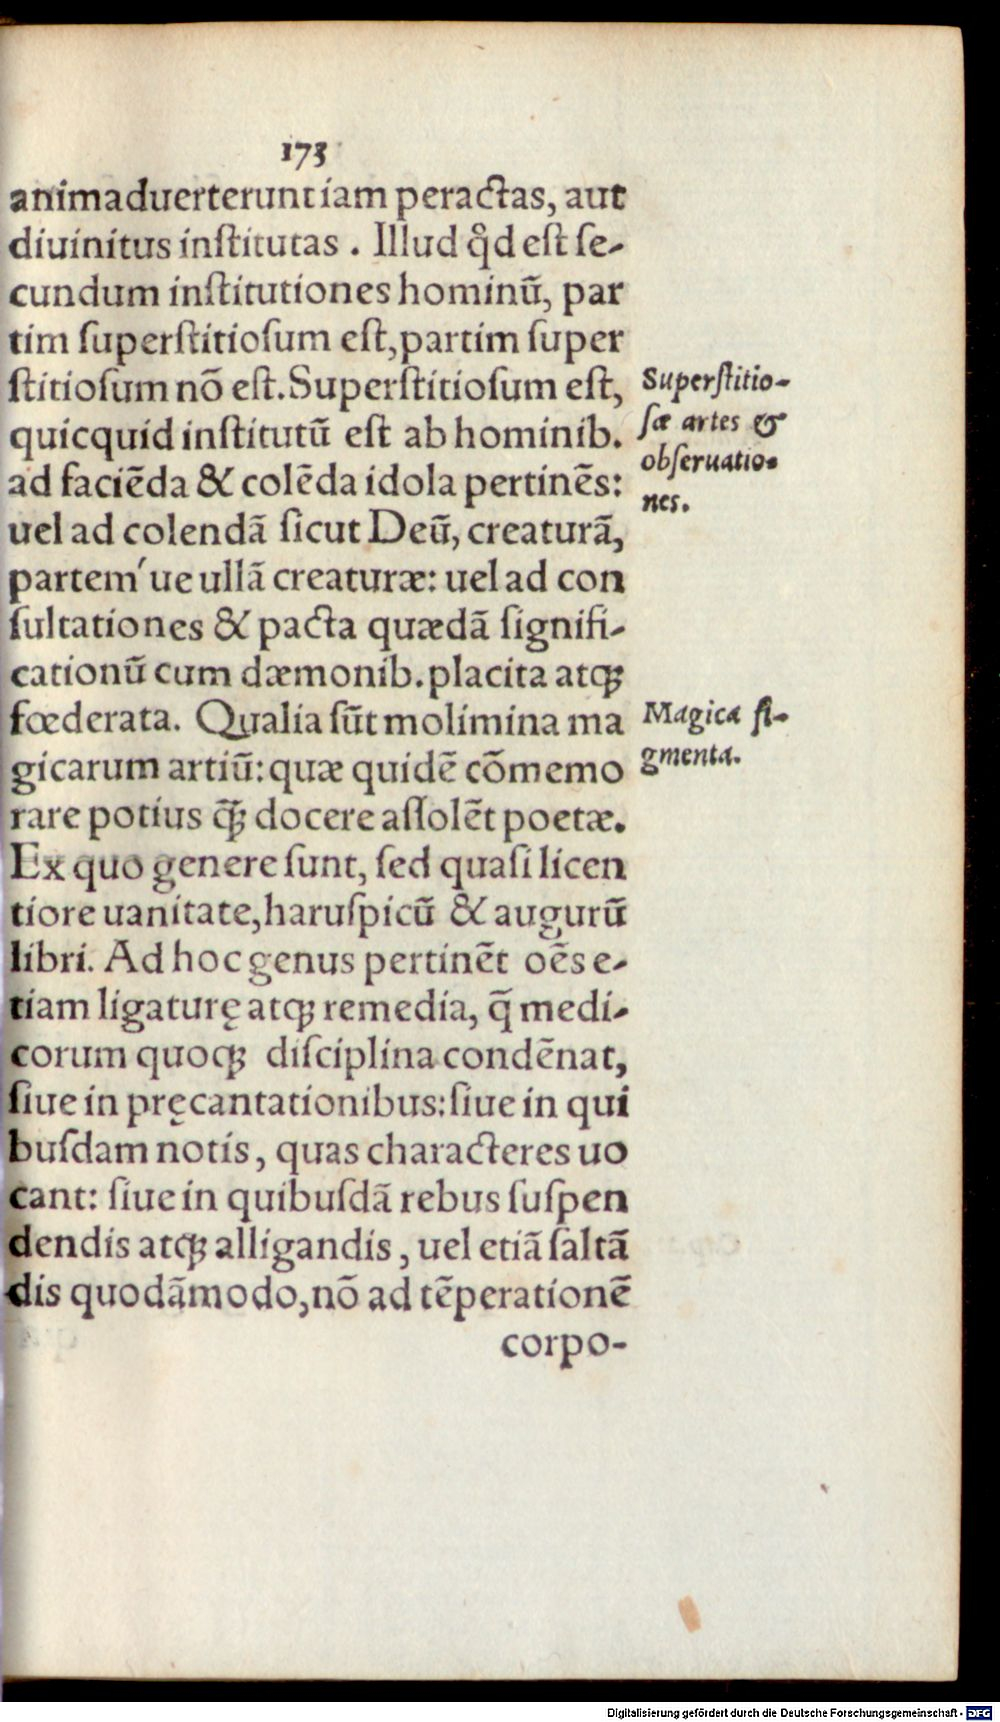 173
animaduerterunt iam peractas, aut
diuinitus inſtitutas . Illud qd̉ eſt ſe-
cundum inſtitutiones hominũ, par
tim ſuperſtitioſum eſt, partim ſuper
ſtitioſum nõ eſt. Superſtitioſum eſt,
quicquid inſtitutũ eſt ab hominib.
ad faciẽda & colẽda idola pertinẽs:
uel ad colendã ſicut Deũ, creaturã,
partem´ue ullã creaturæ: uel ad con
ſultationes & pacta quædã ſignifi-
cationũ cum dæmonib. placita atqꝫ
fœderata. Qualia ſũt molimina ma
gicarum artiũ: quæ quidẽ cõmemo
rare potius q̃ꝫ docere aſſolẽt poetæ.
Ex quo genere ſunt, ſed quaſi licen
tiore uanitate, haruſpicũ & augurũ
libri. Ad hoc genus pertinẽt oẽs e-
tiam ligaturę atqꝫ remedia, q̃ medi-
corum quoqꝫ diſciplina condẽnat,
ſiue in pręcantationibus: ſiue in qui
buſdam notis, quas characteres uo
cant: ſiue in quibuſdã rebus ſuſpen
dendis atqꝫ alligandis, uel etiã ſaltã
dis quodãmodo, nõ ad tẽperationẽ
corpo-
Superſtitio-
ſæ artes &
obſeruatio-
nes.
Magica fi-
gmenta.
Digitalisierung gefördert durch die Deutsche Forschungsgemeinschaft - DFG